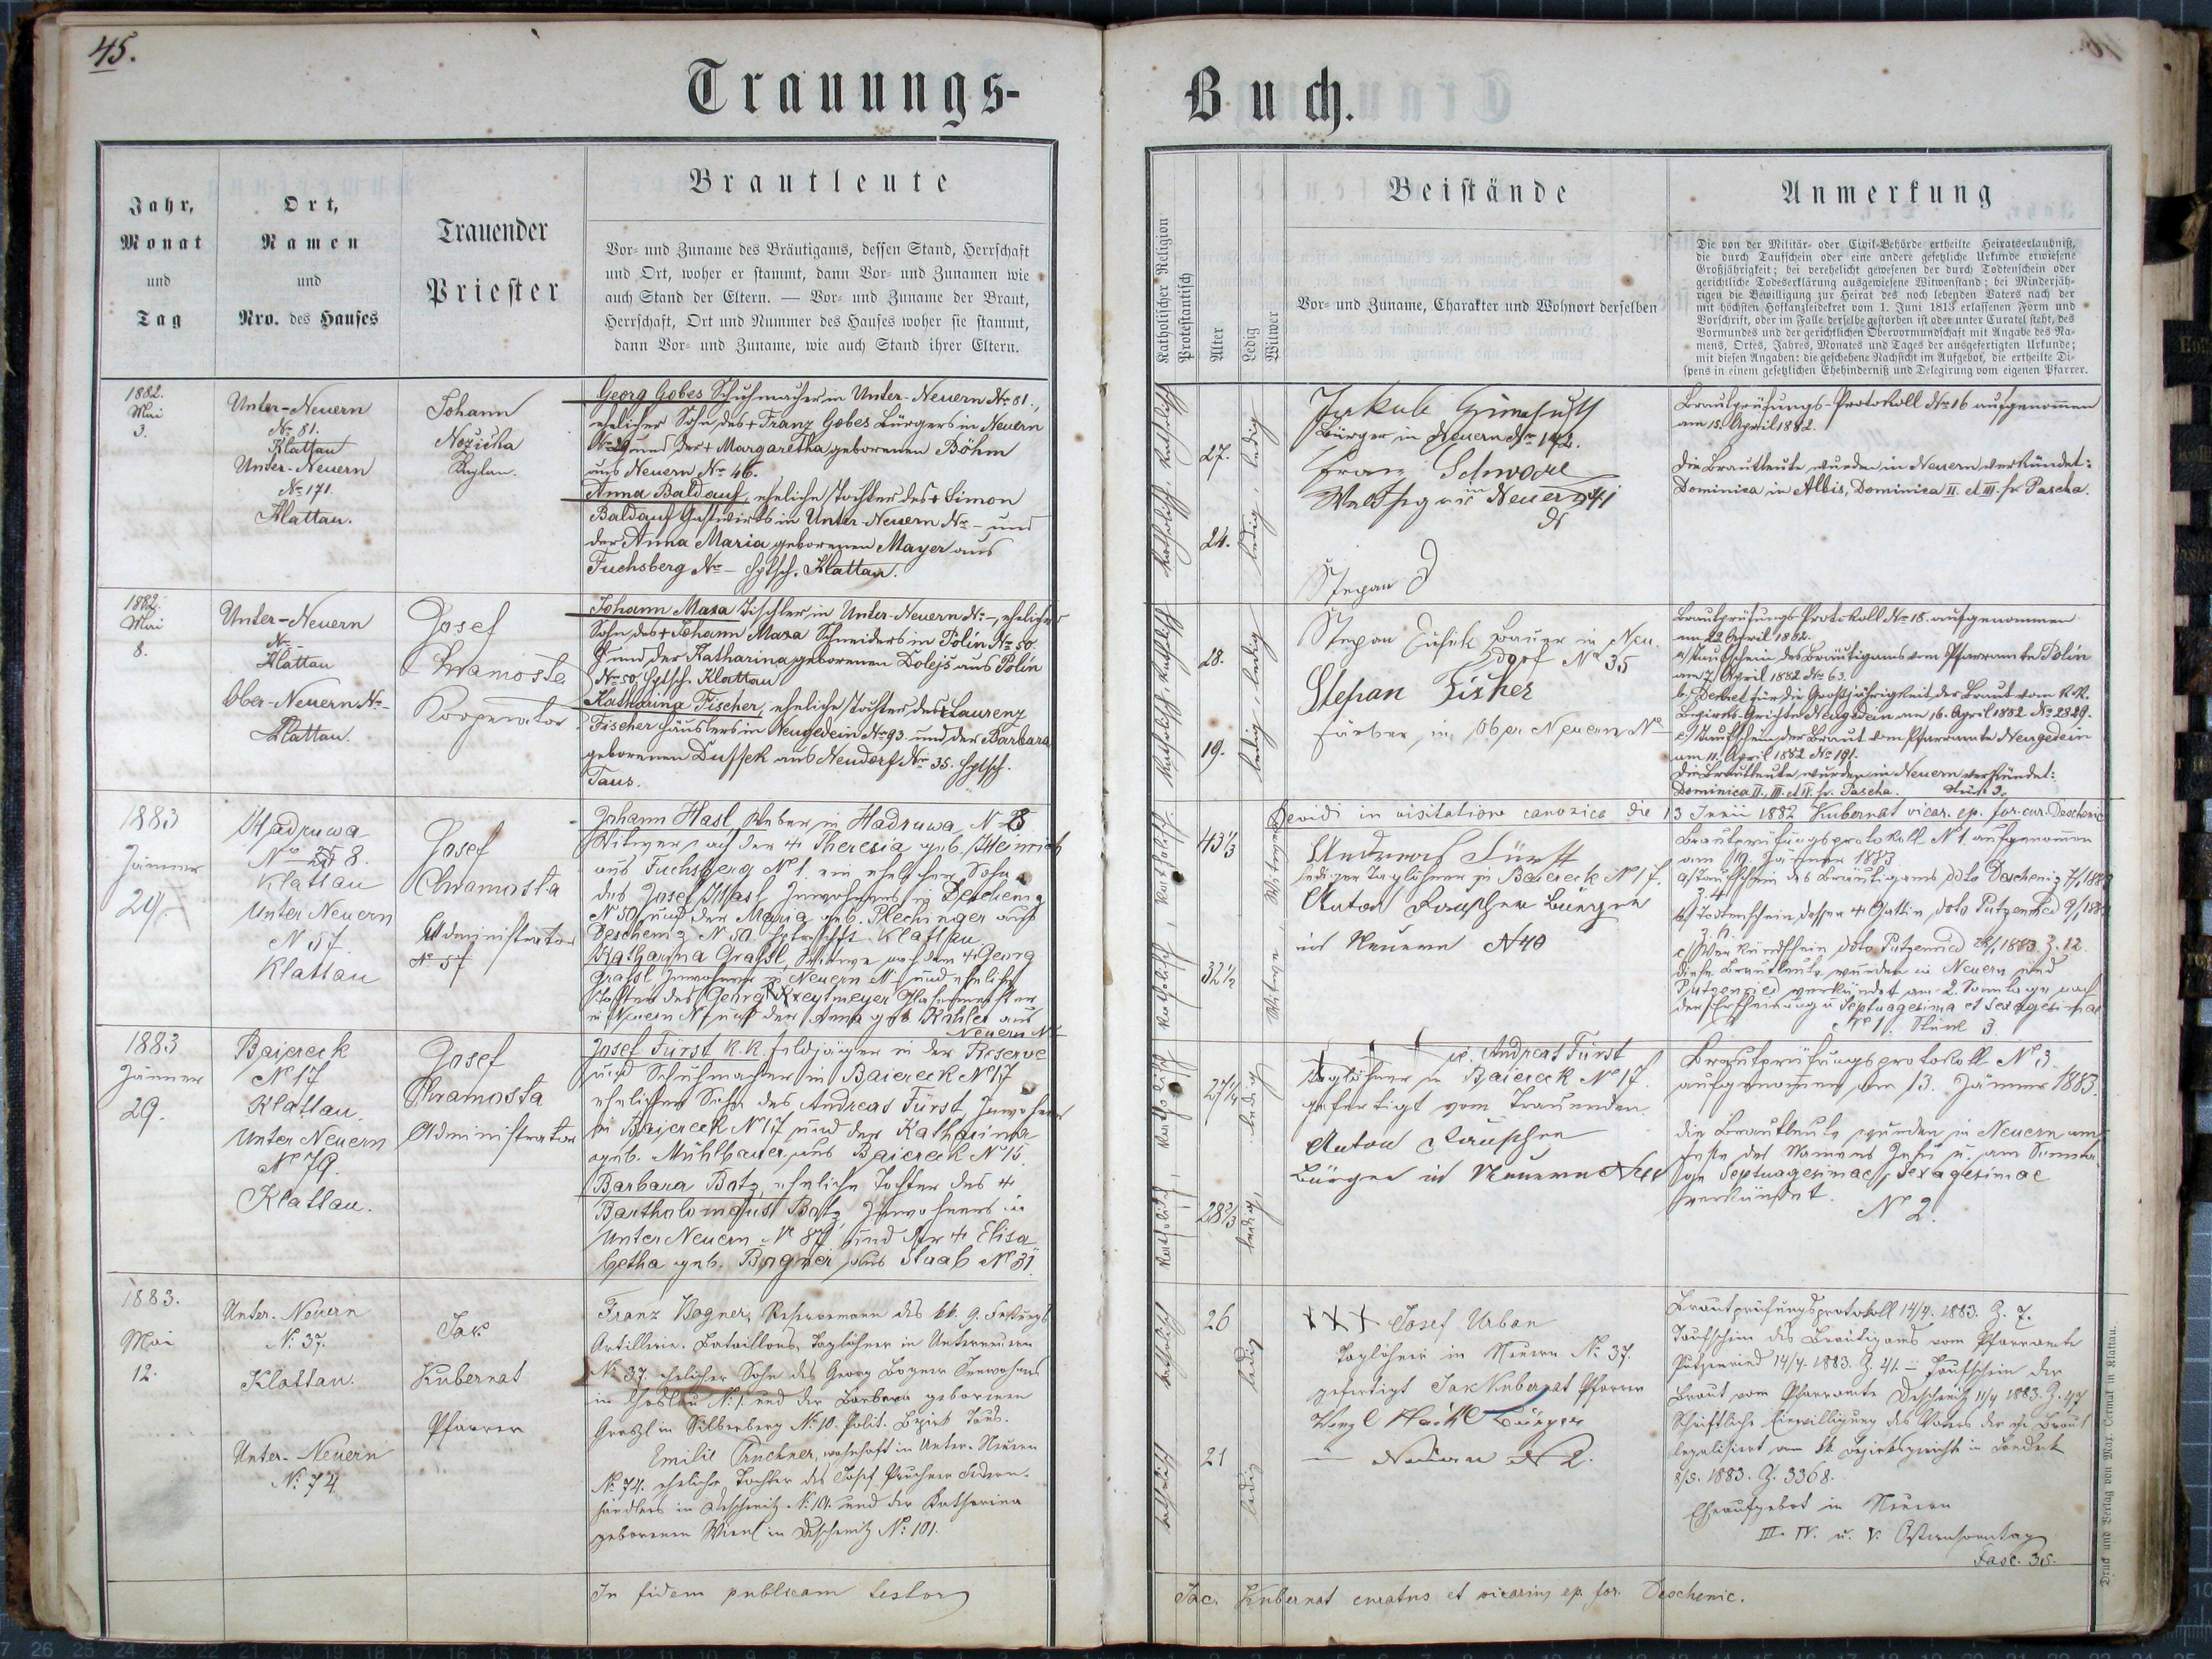 45.
Trauungs-
Buch.
Jahr,
Monat
und
Tag
Ort,
Namen
und
Nro. des Hauses
Trauender
Priester
Brautleute
Vor- und Zuname des Bräutigams, dessen Stand, Herrschaft
und Ort, woher er stammt, dann Vor- und Zunamen wie
auch Stand der Eltern. — Vor- und Zuname der Braut,
Herrschaft, Ort und Nummer des Hauses woher sie stammt,
dann Vor- und Zuname, wie auch Stand ihrer Eltern.
Katholischer Religion
Protestantisch
Alter
Ledig
Witwer
Beistände
Vor- und Zuname, Charakter und Wohnort derselben
Anmerkung
Die von der Militär- oder Civil-Behörde ertheilte Heiratserlaubniß,
die durch Taufschein oder eine andere gesetzliche Urkunde erwiesene
Großjährigkeit; bei verehelicht gewesenen der durch Todtenschein oder
gerichtliche Todeserklärung ausgewiesene Witwenstand; bei Minderjäh-
rigen die Bewilligung zur Heirat des noch lebenden Vaters nach der
mit höchsten Hofkanzleidekret vom 1. Juni 1813 erlassenen Form und
Vorschrift, oder im Falle derselbe gestorben ist oder unter Curatel steht, des
Vormundes und der gerichtlichen Obervormundschaft mit Angabe des Na-
mens, Ortes, Jahres, Monates und Tages der ausgefertigten Urkunde;
mit diesen Angaben: die geschehene Nachsicht im Aufgebot, die ertheilte Di-
spens in einem gesetzlichen Ehehinderniß und Delegirung vom eigenen Pfarrer.
1882.
Mai
3.
Unter-Neuern
No 81.
Klattau
Unter-Neuern
No 171.
Klattau.
Johann
Kaplan.
Georg Gobes Schuhmacher in Unter-Neuern No 81.,
ehelicher Sohn des + Franz Gobes Bürgers in Neuern
und der + Margaretha geborenen Böhm
aus Neuern No 46.
Anna Baldauf, eheliche Tochter des + Simon
Baldauf Gastwirts in Unter-Neuern No - und
der Anna Maria geborenen Mayer aus
Fuchsberg No - Hptsch. Klattau.
katholisch, katholisch
27.
24.
ledig, ledig
Jakob
Bürger in Neuern No 142.
Franz
in Neuern
Stepan
Brautprüfungs-Protokoll No 16 aufgenommen
am 15. April 1882.
Die Brautleute wurden in Neuern verkündet:
Dominica in Albis, Dominica II. et III. p. Pascha.
1882.
Mai
8.
Unter-Neuern
No -
Klattau
Ober-Neuern No -
Klattau.
Josef
Chramosta
Kooperator
Johann Maxa Tischler in Unter-Neuern No -, ehelicher
Sohn des + Johann Maxa Schneiders in Polin No 50.
und der Katharina geborenen Dolejs aus Polin
No 50. Hptsch. Klattau
Katharina Fischer, eheliche Tochter des + Laurenz
Fischer Häuslers in Neugedein No 93. und der Barbara
geborenen Dussek aus Neudorf No 35. Hptsch.
Taus.
katholisch, katholisch
28.
19.
ledig, ledig
Stepan Bauer in Neu
dorf No 35
Stephan Fischer
Färber, in Ober Neuern No
Brautprüfungs-Protokoll No 18. aufgenommen
am 22. April 1882.
a/ Taufschein des Bräutigams vom Pfarramte Polin
am 7. April 1882 No 63.
b/ Decret für die Großjährigkeit der Braut vom K.K.
Bezirks-Gerichte Neugedein am 16. April 1882 No 2829.
c/ Taufschein der Braut vom Pfarramte Neugedein
am 11. April 1882 No 191.
Die Brautleute wurden in Neuern verkündet:
Dominica II., III. et IV. p. Pascha.
in visitatione canonica die 13 Junii 1882 Kubernat vicar. ep. for. cur. Deschenic
1883
Jänner
29.
Hadruwa
No 8.
Klattau
Unter Neuern
N 57
Klattau
Josef
Chramosta
Administrator
N 57
Johann Hasl, Weber in Hadruwa, N 8
Witwer nach der + Theresia geb. Heinrich
aus Fuchsberg No 1. ein ehelicher Sohn
des Josef Hasl Inwohners in Deschenig
N 50 und der Maria geb. Plechinger aus
Deschenig N 50. Hptmschft. Klattau
Katharina Grassl, Witwe nach dem + Georg
Grassl Inwohner in Neuern N - und eheliche
Tochter des Georg Kreytmeyer
in Neuern N und der Anna geb. Kohler aus
Neuern N -
katholisch, katholisch
43 1/3
32 1/2
Witwe, Witwer
Andreas Fürst
lediger Taglöhner zu Baiereck No 17.
Anton Rauscher Bürger
in Neuern N 40
Brautprüfungsprotokoll N 1. aufgenommen
am Jänner 1883
a/ Taufschein des Bräutigams ddto Deschenig
b/ Todtenschein dessen + Gattin, ddto Putzenried
c/ Verkündschein ddto Putzenried 28/1 1883 Z. 12.
diese Brautleute wurden in Neuern und
Putzenried verkündet am 2. Sonntage nach
der Erscheinung u Septuagesima et Sexagesimae
1883
Jänner
29.
Baiereck
No 17
Klattau.
Unter Neuern
No 79.
Klattau.
Josef
Chramosta
Administrator
Josef Fürst K.K. Feldjäger in der Reserve
und Schuhmacher in Baiereck No 17
ehelicher Sohn des Andreas Fürst, Inwohners
in Baiereck N 17 und der Katharina
geb. Mühlbauer, aus Baiereck N 15.
Barbara Botz, eheliche Tochter des +
Bartholomäus Botz, Inwohners in
Unter Neuern No 87 und der + Elisa
betha geb. Bogner, aus Staab No 31.
katholisch, katholisch
27 1/4
28 2/3
ledig, ledig
+ + + Andreas Fürst
Taglöhner in Baiereck No 17.
gefertigt vom Trauenden.
Anton Rauscher
Bürger in Neuern
Brautprüfungsprotokoll No 3
aufgenommen am 13. Jänner 1883.
die Brautleute wurden in Neuern am
Feste des Namens Jesu u. am Sonnta-
ge Septuagesimae, Sexagesimae
verkündet.
No 2.
1883.
Mai
12.
Unter-Neuern
No 37.
Klattau.
Unter-Neuern
No 74
Jak
Kubernat
Pfarrer
Franz Bogner, Reservemann des kk. 9. Festungs
Artillerie-Bataillons, Taglöhner in Unterneuern
No 37. ehelicher Sohn des Georg Bogner Inwohners
in No 1. und der Barbara geborenen
Graszl in Silberberg No 10. Polit. Bezirk Taus.
Emilie Pruckner, wohnhaft in Unter-Neuern
No 74. eheliche Tochter des Josef Pruckner Federn-
händlers in Deschenitz No 101. und der Katharina
geborenen in Deschenitz No 101.
katholisch
katholisch
26
21
ledig
ledig
XXX Josef Urban
Taglöhner in Neuern No 37.
gefertigt Jak Kubernat Pfarrer
Bürger
Neuern N 2.
Brautprüfungsprotokoll 14/4. 1883. Z. 7.
Taufschein des Bräutigams vom Pfarramte
Putzenried 14/4. 1883. Z. 41. - Taufschein der
Braut vom Pfarramte Deschenitz 11/4 1883. Z. 47
Schriftliche Einwilligung des Vaters der Braut
legalisiert vom kk. Bezirksgericht in
1883. Z. 3368.
Eheaufgebot in Neuern
III. IV. u. V. Ostersonntag
Fasc. 35.
In fidem publicam testor
Jac. Kubernat curatus et vicarius ep. for. Deschenic.
Druck und Verlag von Max. Cermak in Klattau.